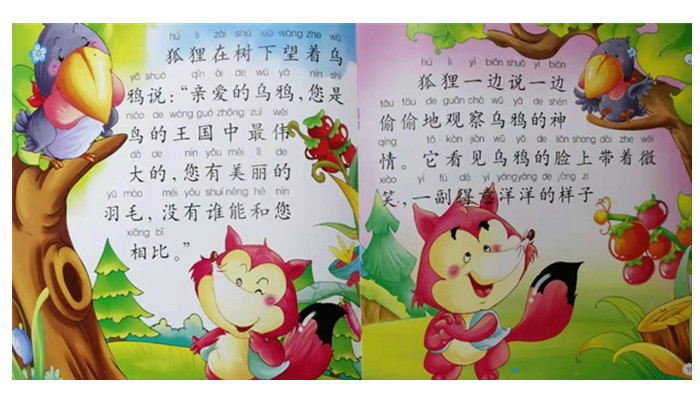 hú li zài shù xià wàng zhe wū
狐狸在树下望着乌
yā shuō qīn ài de wū yā nín shì
鸦说：“亲爱的乌鸦，您是
niǎo de wáng guó zhōng zuì wěi
鸟的王国中最伟
dà de nín yǒu měi lì de
大的，您有美丽的
yǔ máo méi yǒu shuí néng hé nín
羽毛，没有谁能和您
xiāng bǐ
相比。”
hú li yì biān shuō yì biān
狐狸一边说一边
tōu tōu de guān chá wū yā de shén
偷偷地观察乌鸦的神
qíng tā kàn jiàn wū yā de liǎn shang dài zhe wēi
情。它看见乌鸦的脸上带着微
xiào yí fù dé yì yáng yáng de yàng zi
笑，一副得意洋洋的样子